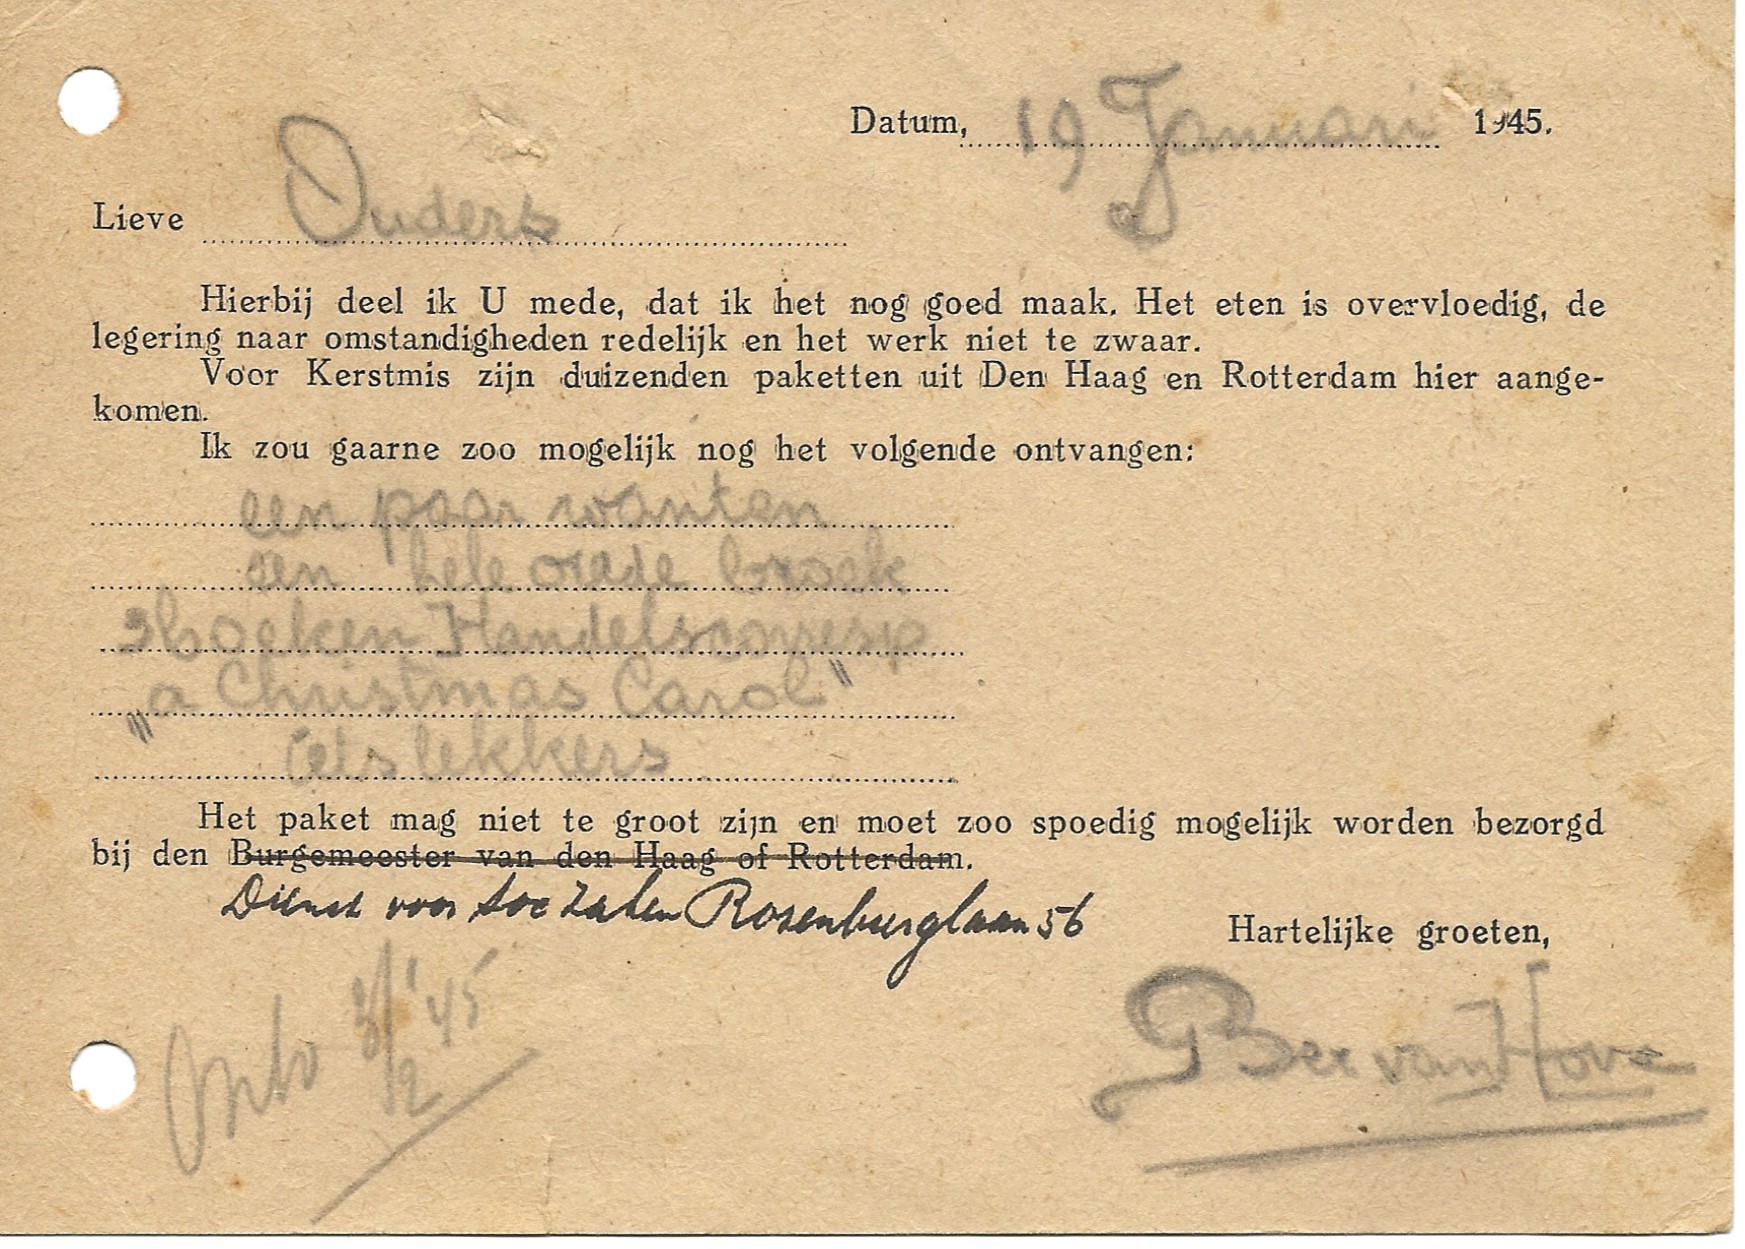 Datum, 19 Januari 1945.
Lieve Ouders
Hierbij deel ik U mede, dat ik het nog goed maak. Het eten is overvloedig, de
legering naar omstandigheden redelijk en het werk niet te zwaar.
Voor Kerstmis zijn duizenden paketten uit Den Haag en Rotterdam hier aange-
komen.
Ik zou gaarne zoo mogelijk nog het volgende ontvangen:
een paar wanten
een hele oude broek
boeken Handelscorresp
"a Christmas Carol"
iets lekkers
Het paket mag niet te groot zijn en moet zoo spoedig mogelijk worden bezorgd
bij den Burgemeester van den Haag of Rotterdam.
Dienst voor Soc Zaken Rosenburglaan 56
Hartelijke groeten,
'45
2
van Hove